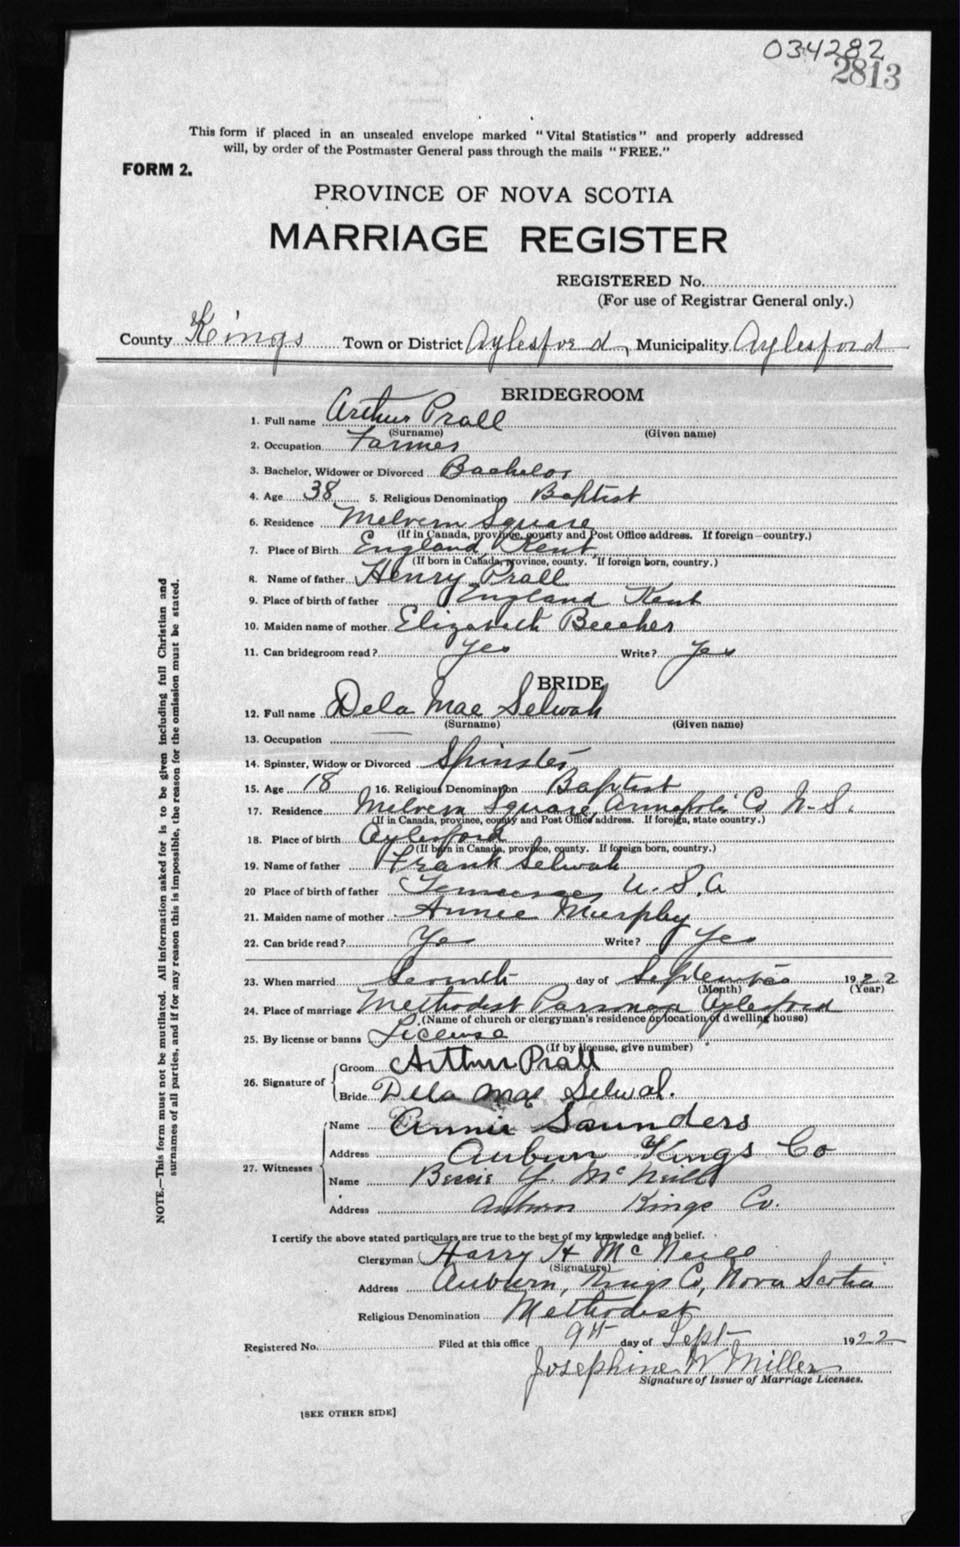 034282
2813
This form if placed in an unsealed envelope marked "Vital Statistics" and properly addressed
will, by order of the Postmaster General pass through the mails "FREE."
FORM 2.
PROVINCE OF NOVA SCOTIA
MARRIAGE REGISTER
REGISTERED No.
(For use of Registrar General only.)
County Kings Town or District Aylesford Municipality Aylesford
BRIDEGROOM
1. Full name Arthur Prall
(Surname) (Given name)
2. Occupation Farmer
3. Bachelor, Widower or Divorced Bachelor
4. Age 38 5. Religious Denomination Baptist
6. Residence Melvern Square
(If in Canada, province, county and Post Office address. If foreign—country.)
7. Place of Birth England Kent
(If born in Canada, province, county. If foreign born, country.)
8. Name of father Henry Prall
9. Place of birth of father England Kent
10. Maiden name of mother Elizabeth Beecher
11. Can bridegroom read? Yes Write? Yes
BRIDE
12. Full name Dela Mae Selwah
(Surname) (Given name)
13. Occupation
14. Spinster, Widow or Divorced Spinster
15. Age 18 16. Religious Denomination Baptist
17. Residence Melvern Square, Annapolis Co N.S.
(If in Canada, province, county and Post Office address. If foreign, state country.)
18. Place of birth Aylesford
(If born in Canada, province, county. If foreign born, country.)
19. Name of father Frank Selwah
20 Place of birth of father U.S.A
21. Maiden name of mother Annie Murphy
22. Can bride read? Yes Write? Yes
23. When married Seventh day of September 1922
(Month) (Year)
24. Place of marriage Methodist Parsonage Aylesford
(Name of church or clergyman's residence or location of dwelling house)
25. By license or banns License
(If by license, give number)
26. Signature of Groom Arthur Prall
Bride Della Mae Selwah.
27. Witnesses Name Annie Saunders
Address Auburn Kings Co
Name Bessie Y. McNeill
Address Auburn Kings Co.
I certify the above stated particulars are true to the best of my knowledge and belief.
Clergyman Harry H McNeill
(Signature)
Address Auburn, Kings Co, Nova Scotia
Religious Denomination Methodist
Registered No. Filed at this office 9th day of Sept 1922
Josephine W Miller
Signature of Issuer of Marriage Licenses.
[SEE OTHER SIDE]
NOTE.—This form must not be mutilated. All information asked for is to be given including full Christian and
surnames of all parties, and if for any reason this is impossible, the reason for the omission must be stated.